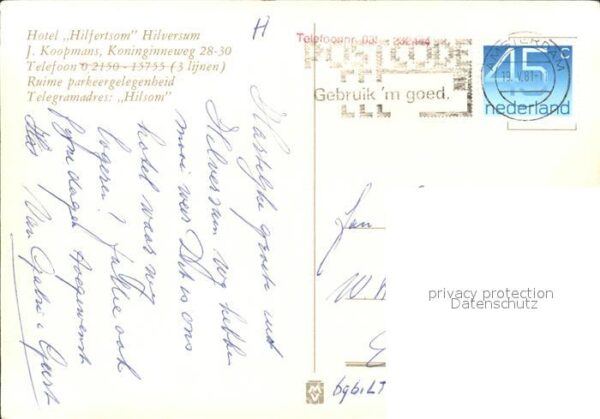 Hotel „Hilfertsom” Hilversum
J. Koopmans, Koninginneweg 28-30
Telefoon 0 2150 - 15755 (3 lijnen)
Ruime parkeergelegenheid
Telegramadres: „Hilsom”
H
Telefoonnr. 03
POSTCODE
Gebruik 'm goed.
45 c
nederland
Hartelijke groeten uit
Hilversum wy hebben
mooi weer Dit is ons
hotel waar wy
logeren? jullie ook
fyne dagen toegewenst
Van Opa
Jan
W.
privacy protection
Datenschutz